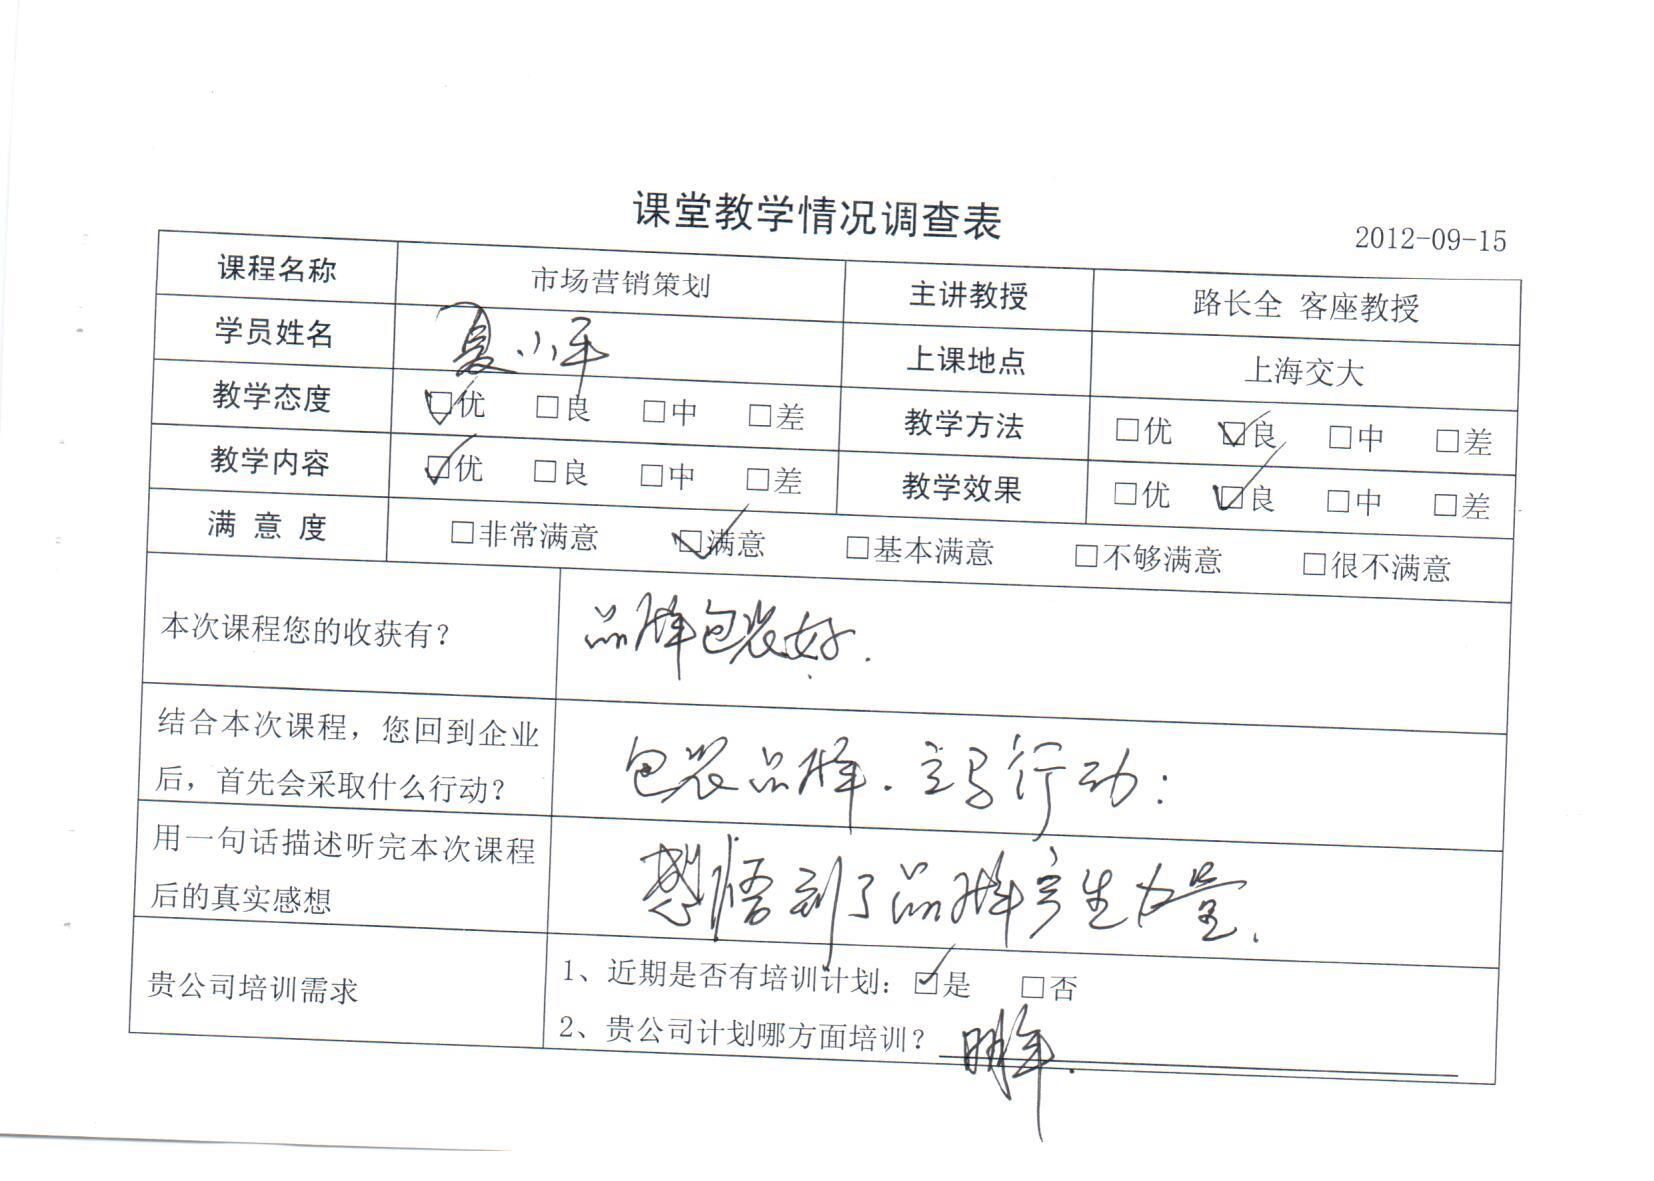 课堂教学情况调查表
2012-09-15
课程名称 市场营销策划 主讲教授 路长全 客座教授
学员姓名 夏小军 上课地点 上海交大
教学态度 ☑优 □良 □中 □差 教学方法 □优 ☑良 □中 □差
教学内容 ☑优 □良 □中 □差 教学效果 □优 ☑良 □中 □差
满意度 □非常满意 ☑满意 □基本满意 □不够满意 □很不满意
本次课程您的收获有？ 品牌包装好.
结合本次课程，您回到企业
后，首先会采取什么行动？ 包装品牌. 立马行动:
用一句话描述听完本次课程
后的真实感想 感悟到了品牌产生力量.
贵公司培训需求
1、近期是否有培训计划：☑是 □否
2、贵公司计划哪方面培训？ 明年.